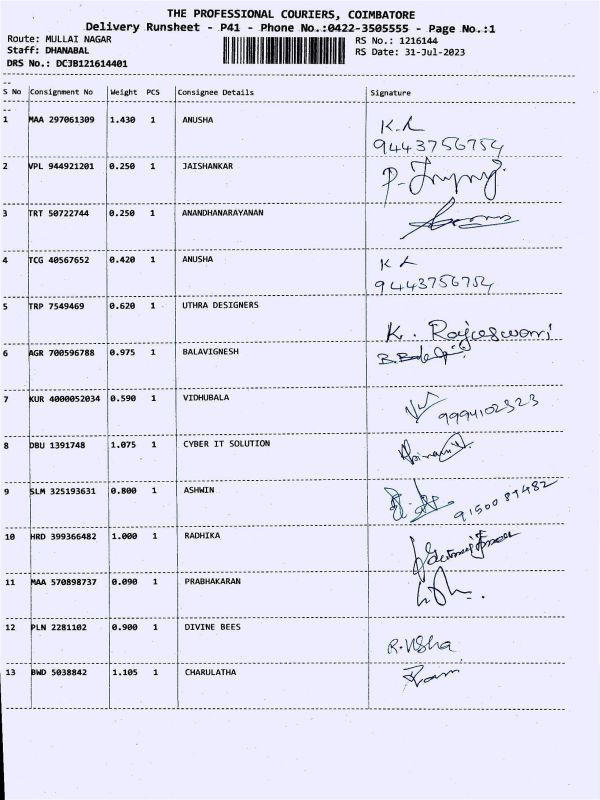 THE PROFESSIONAL COURIERS, COIMBATORE
Delivery Runsheet - P41 - Phone No.:0422-3505555 - Page No.:1
Route: MULLAI NAGAR RS No.: 1216144
Staff: DHANABAL RS Date: 31-Jul-2023
DRS No.: DCJB121614401
--
S No Consignment No Weight PCS Consignee Details Signature
--
1 MAA 297061309 1.430 1 ANUSHA K.L
9443756754
2 VPL 944921201 0.250 1 JAISHANKAR
3 TRT 50722744 0.250 1 ANANDHANARAYANAN
4 TCG 40567652 0.420 1 ANUSHA K L
9443756754
5 TRP 7549469 0.620 1 UTHRA DESIGNERS
K. Rajeswari
6 AGR 700596788 0.975 1 BALAVIGNESH
7 KUR 4000052034 0.590 1 VIDHUBALA 9994102323
8 DBU 1391748 1.075 1 CYBER IT SOLUTION
9 SLM 325193631 0.800 1 ASHWIN 9150089482
10 HRD 399366482 1.000 1 RADHIKA
11 MAA 570898737 0.090 1 PRABHAKARAN
12 PLN 2281102 0.900 1 DIVINE BEES
R. Usha
13 BWD 5038842 1.105 1 CHARULATHA Ram